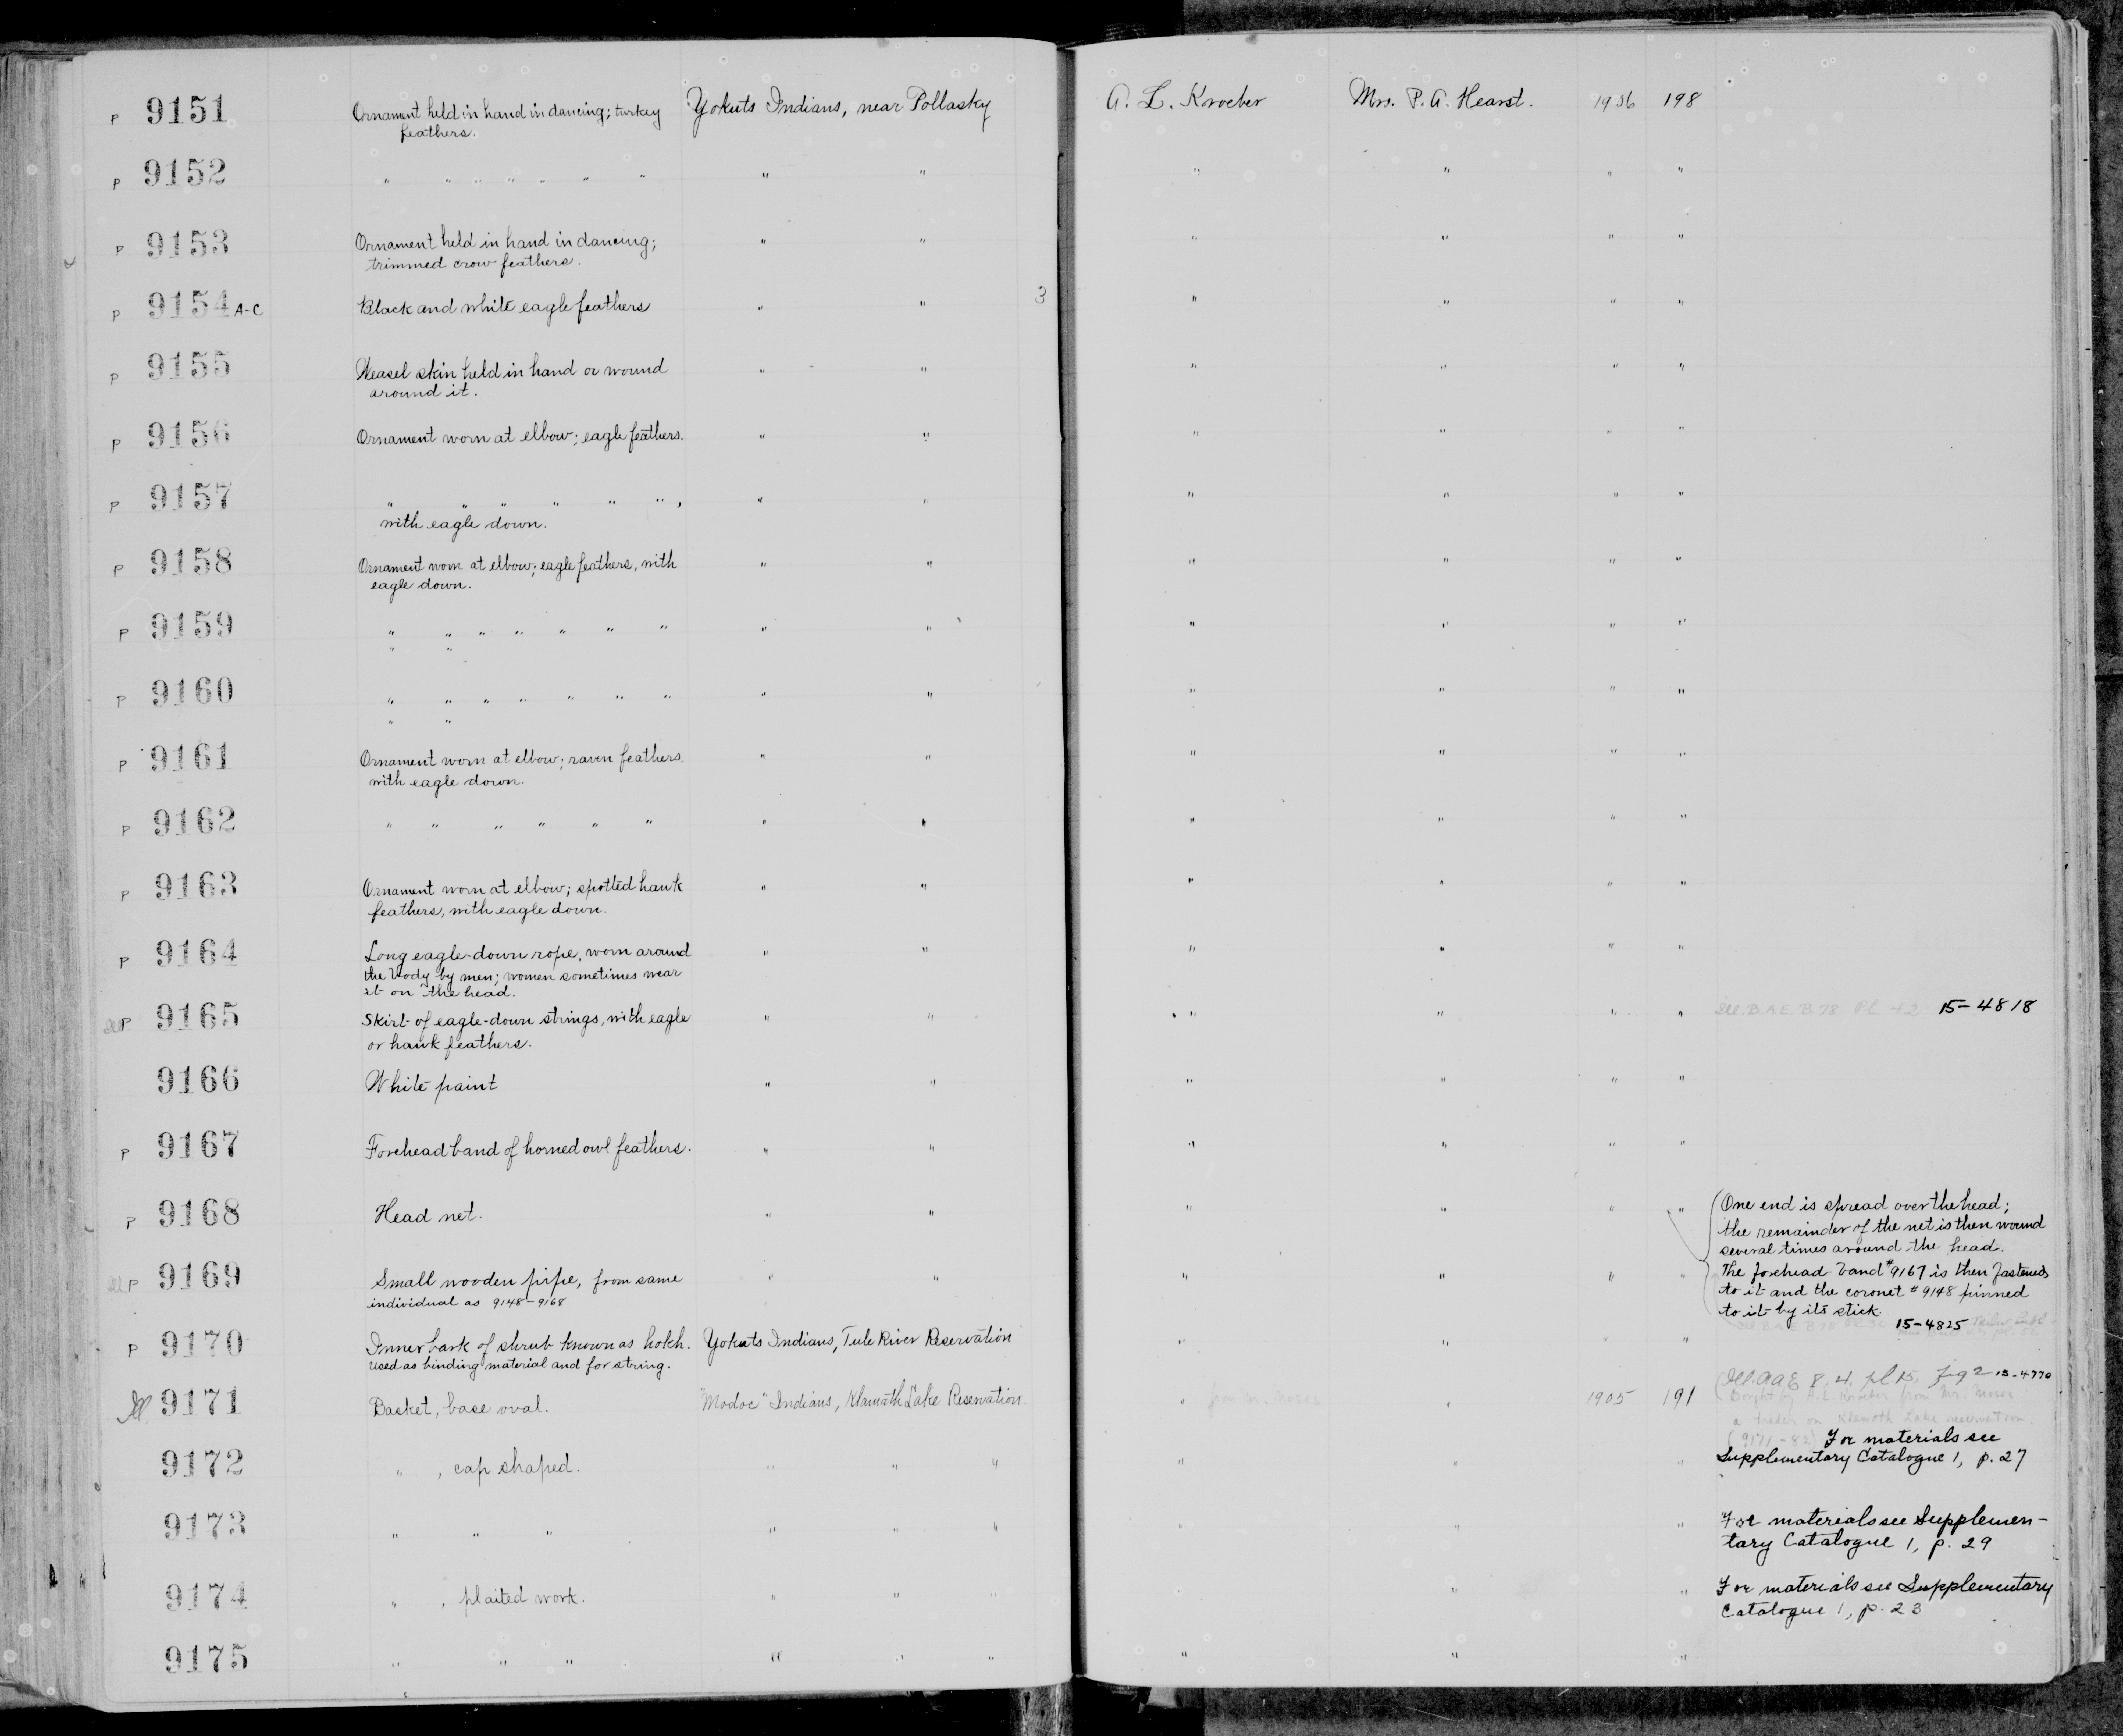 P 9151 Ornament held in hand in dancing; turkey Yokuts Indians, near Pollasky A. L. Kroeber Mrs. P. A. Hearst. 1906 198
feathers.
P 9152 " " " " " " " " " " " " "
P 9153 Ornament held in hand in dancing; " " " " " "
trimmed crow feathers.
P 9154 A-C Black and white eagle feathers " " 3 " " " "
P 9155 Weasel skin held in hand or wound " " " " " "
around it.
P 9156 Ornament worn at elbow; eagle feathers. " " " " " "
P 9157 " " " " " ", " " " " " "
with eagle down.
P 9158 Ornament worn at elbow; eagle feathers, with " " " " " "
eagle down.
P 9159 " " " " " " " " " " " " "
" "
P 9160 " " " " " " " " " " " " "
" "
P 9161 Ornament worn at elbow; raven feathers " " " " " "
with eagle down.
P 9162 " " " " " " " " " " " "
P 9163 Ornament worn at elbow; spotted hawk " " " " " "
feathers, with eagle down.
P 9164 Long eagle-down rope, worn around " " " " " "
the body by men; women sometimes wear
it on the head.
Ill P 9165 Skirt of eagle-down strings, with eagle " " " " " " Ill. B.A.E. B. 78 Pl. 42 15-4818
or hawk feathers.
9166 White paint " " " " " "
P 9167 Forehead band of horned owl feathers. " " " " " "
P 9168 Head net. " " " " " " (One end is spread over the head;
the remainder of the net is then wound
several times around the head.
Ill P 9169 Small wooden pipe, from same " " " " " " The forehead band #9167 is then fastened
individual as 9148-9168 to it and the coronet #9148 pinned
to it by its stick.
15-4825
P 9170 Inner bark of shrub known as hokh. Yokuts Indians, Tule River Reservation " " " "
used as binding material and for string.
Ill. AAE 8, 4, pl. 15, fig 2 15-4770
Ill 9171 Basket, base oval. "Modoc" Indians, Klamath Lake Reservation. " from Mr. Moses " 1905 191 Bought by A.L. Kroeber from Mr. Moses
a trader on Klamath Lake reservation.
(9171-82) For materials see
9172 " , cap shaped. " " " " " " Supplementary Catalogue 1, p. 27
9173 " " " " " " " " " For materials see Supplemen-
tary Catalogue 1, p. 29
9174 " , plaited work. " " " " " For materials see Supplementary
Catalogue 1, p. 23
9175 " " " " " " " " "